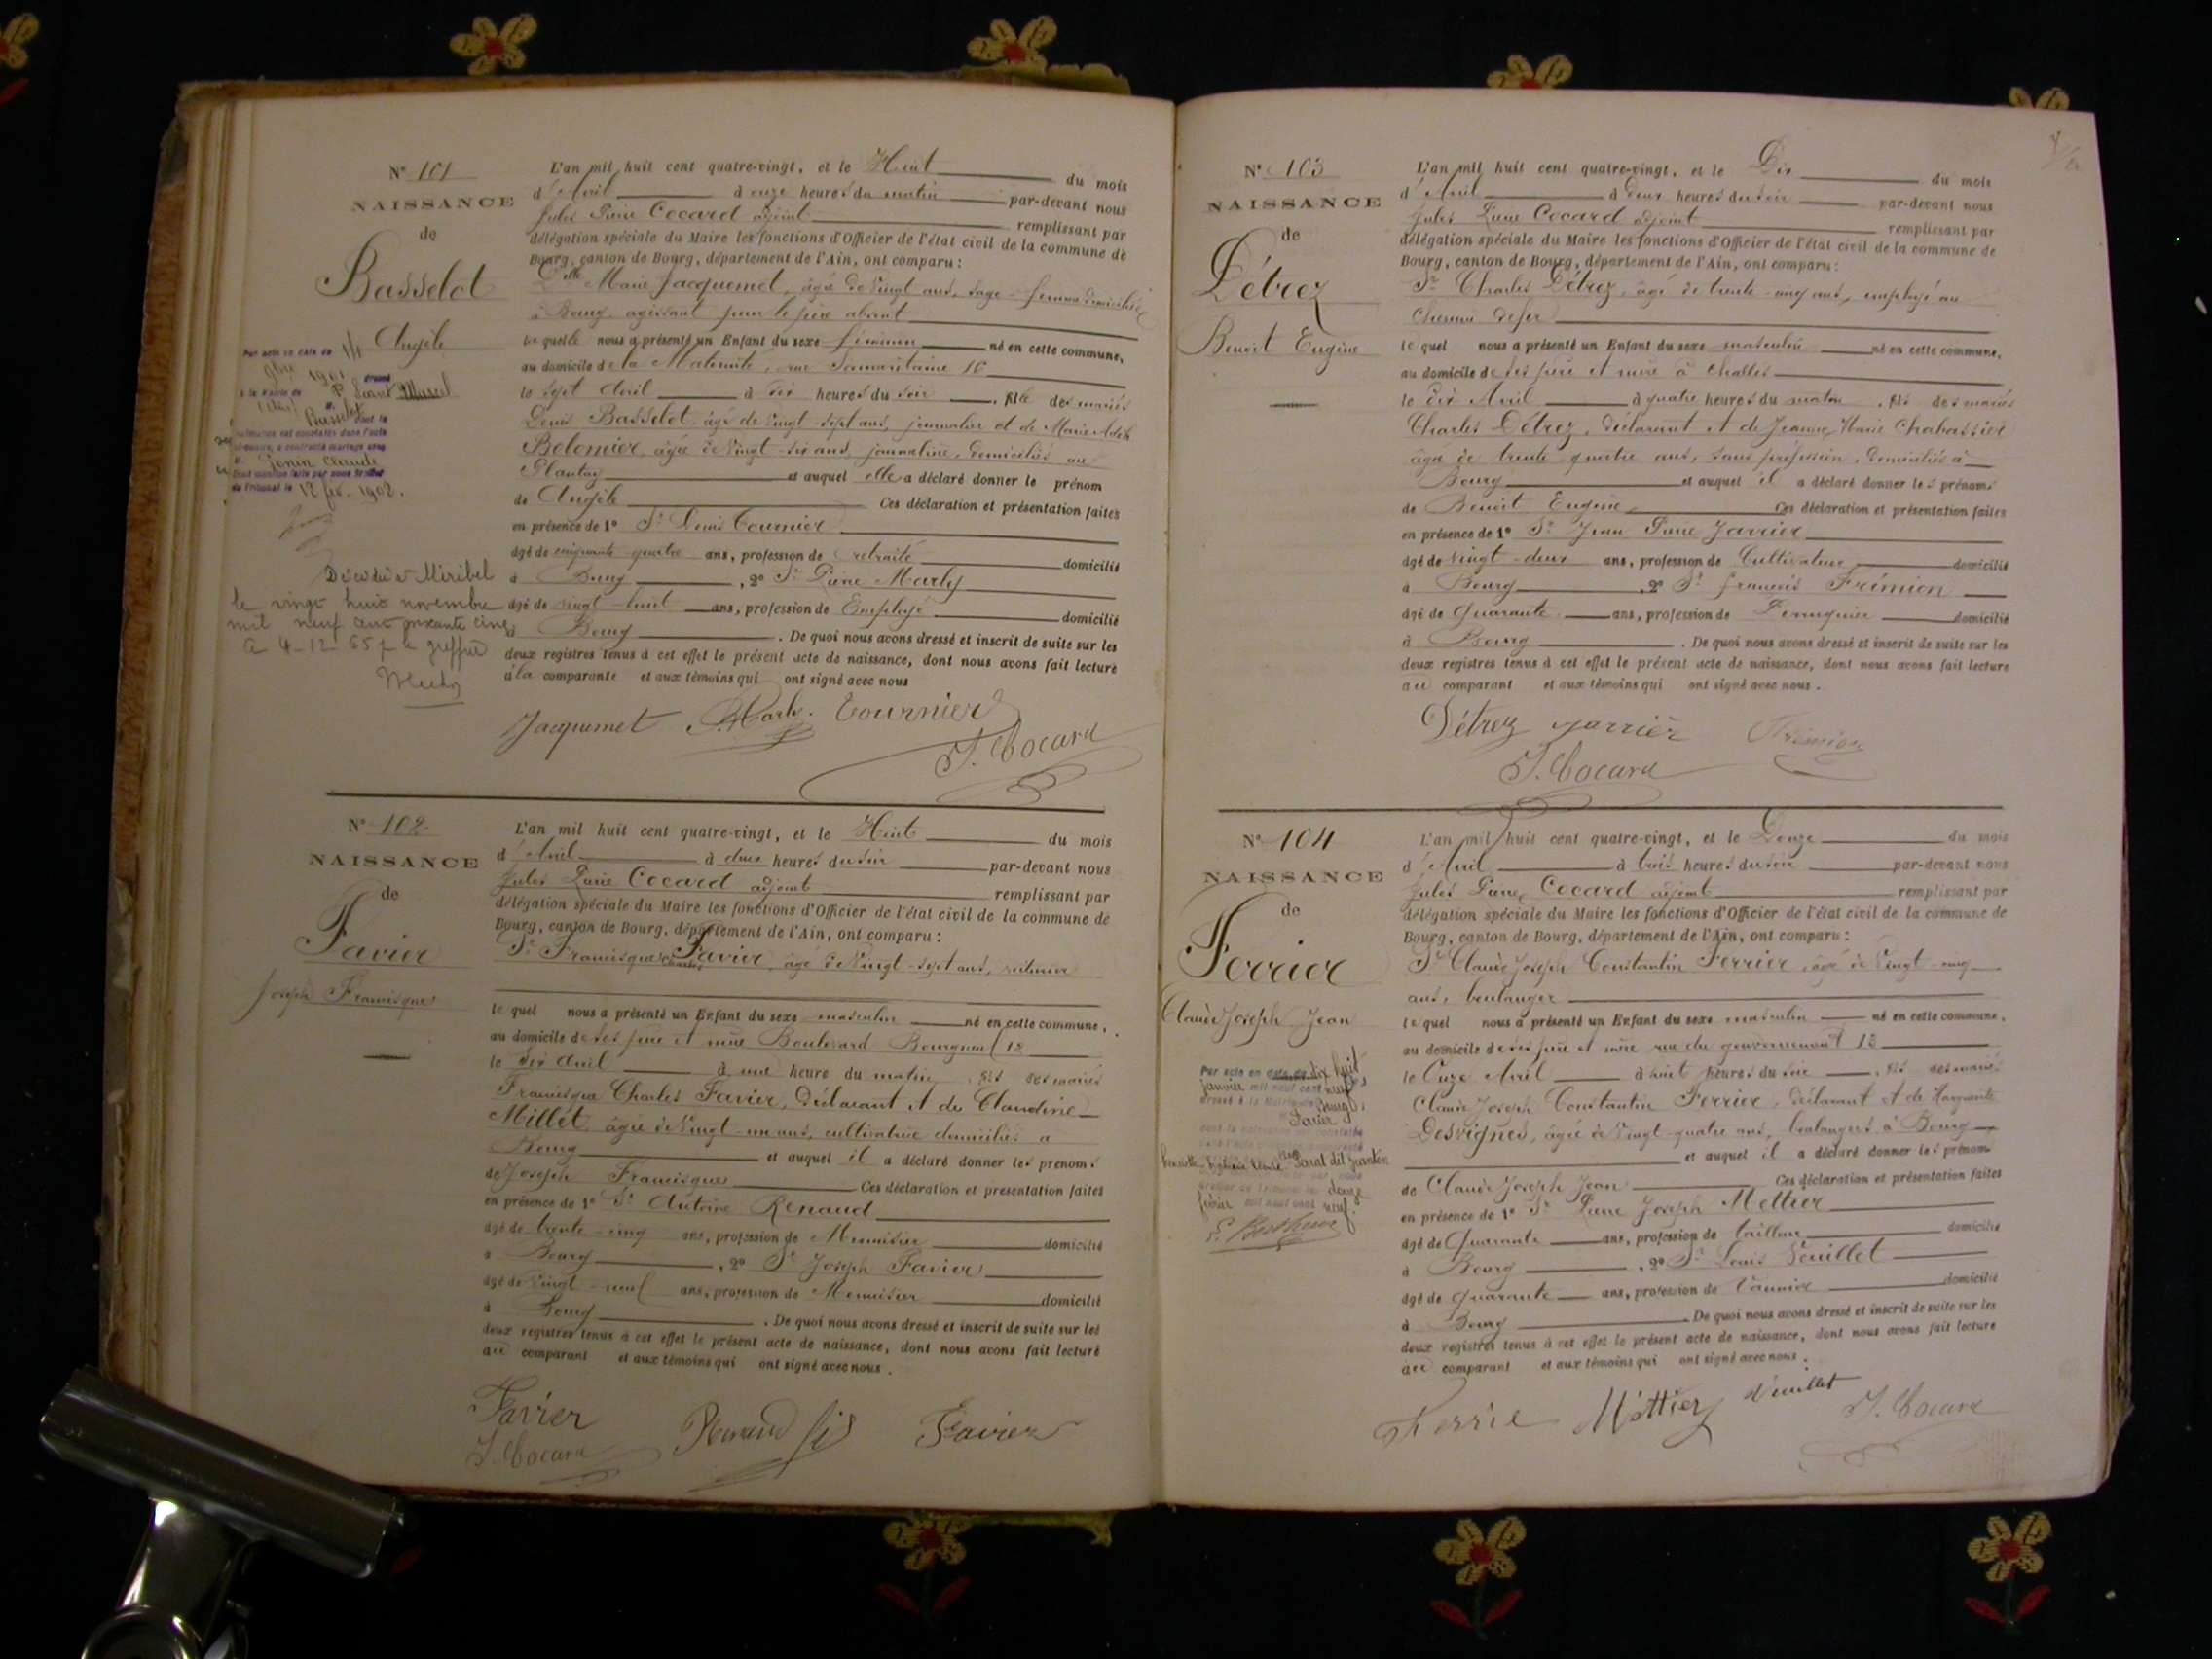 N° 101
NAISSANCE
de
Basselot
Angèle
L'an mil huit cent quatre-vingt, et le Huit du mois
d'Avril à onze heures du matin par-devant nous
Jules Pierre Cocard adjoint remplissant par
délégation spéciale du Maire les fonctions d'Officier de l'état civil de la commune de
Bourg, canton de Bourg, département de l'Ain, ont comparu :
Delle Marie Jacquemet, âgée de vingt ans, sage-femme domiciliée
à Bourg, agissant pour le père absent
le quelle nous a présenté un Enfant du sexe féminin né en cette commune,
au domicile de la Maternité, rue Samaritaine 16
le sept Avril à dix heures du soir, fille des mariés
Denis Basselot, âgé de vingt-sept ans, journalier et de Marie Adèle
Belomier, âgée de vingt-six ans, journalière, domiciliés au
Plantay et auquel elle a déclaré donner le prénom
de Angèle Ces déclaration et présentation faites
en présence de 1° Sr Denis Tournier
âgé de cinquante-quatre ans, profession de retraité domicilié
à Bourg, 2° Sr Pierre Marly
âgé de vingt-huit ans, profession de Employé domicilié
Bourg. De quoi nous avons dressé et inscrit de suite sur les
deux registres tenus à cet effet le présent acte de naissance, dont nous avons fait lecture
à la comparante et aux témoins qui ont signé avec nous
Jacquemet P. Marly. Tournier
J. Cocard
Par acte en date du
1901
à la Mairie de
Basselot dont la
naissance est constatée dans l'acte
Jonin Claude
du Tribunal le 12 fév. 1902.
Décédée à Miribel
le vingt huit novembre
mil neuf cent soixante cinq
4-12-65 le greffier
N° 102
NAISSANCE
de
Favier
Joseph Francisque
L'an mil huit cent quatre-vingt, et le Huit du mois
d'Avril à deux heures du soir par-devant nous
Jules Pierre Cocard adjoint remplissant par
délégation spéciale du Maire les fonctions d'Officier de l'état civil de la commune de
Bourg, canton de Bourg, département de l'Ain, ont comparu :
Sr Francisque Charles Favier, âgé de vingt-sept ans, voiturier
le quel nous a présenté un Enfant du sexe masculin né en cette commune,
au domicile de ses père et mère Boulevard Bourgneuf 12
le six Avril à une heure du matin, fils des mariés
Francisque Charles Favier, déclarant et de Claudine
Millet, âgée de vingt-un ans, cultivatrice domiciliés à
Bourg et auquel il a déclaré donner les prénoms
de Joseph Francisque Ces déclaration et présentation faites
en présence de 1° Sr Antoine Renaud
âgé de trente-cinq ans, profession de Menuisier domicilié
à Bourg, 2° Sr Joseph Favier
âgé de vingt-neuf ans, profession de Menuisier domicilié
à Bourg. De quoi nous avons dressé et inscrit de suite sur les
deux registres tenus à cet effet le présent acte de naissance, dont nous avons fait lecture
au comparant et aux témoins qui ont signé avec nous.
Favier Renaud fils Favier
J. Cocard
N° 103
NAISSANCE
de
Détrez
Benoit Eugène
L'an mil huit cent quatre-vingt, et le Dix du mois
d'Avril à deux heures du soir par-devant nous
Jules Pierre Cocard adjoint remplissant par
délégation spéciale du Maire les fonctions d'Officier de l'état civil de la commune de
Bourg, canton de Bourg, département de l'Ain, ont comparu :
Sr Charles Détrez, âgé de trente-cinq ans, employé au
chemin de fer
le quel nous a présenté un Enfant du sexe masculin né en cette commune,
au domicile de ses père et mère à Challes
le dix Avril à quatre heures du matin, fils des mariés
Charles Détrez, déclarant et de Jeanne Marie Chabassier
âgée de trente quatre ans, sans profession, domiciliés à
Bourg et auquel il a déclaré donner les prénoms
de Benoit Eugène Ces déclaration et présentation faites
en présence de 1° Sr Jean Pierre Javrier
âgé de vingt-deux ans, profession de Cultivateur domicilié
à Bourg, 2° Sr François Frémion
âgé de quarante ans, profession de Perruquier domicilié
à Bourg. De quoi nous avons dressé et inscrit de suite sur les
deux registres tenus à cet effet le présent acte de naissance, dont nous avons fait lecture
au comparant et aux témoins qui ont signé avec nous.
Détrez Frémion
J. Cocard
N° 104
NAISSANCE
de
Ferrier
Claude Joseph Jean
L'an mil huit cent quatre-vingt, et le Douze du mois
d'Avril à trois heures du soir par-devant nous
Jules Pierre Cocard adjoint remplissant par
délégation spéciale du Maire les fonctions d'Officier de l'état civil de la commune de
Bourg, canton de Bourg, département de l'Ain, ont comparu :
Sr Claude Joseph Constantin Ferrier, âgé de vingt-cinq
ans, boulanger
le quel nous a présenté un Enfant du sexe masculin né en cette commune,
au domicile de ses père et mère rue du gouvernement 13
le Onze Avril à huit heures du soir, fils des mariés
Claude Joseph Constantin Ferrier, déclarant et de Marguerite
Desvignes, âgée de vingt-quatre ans, boulangers à Bourg
et auquel il a déclaré donner les prénoms
de Claude Joseph Jean Ces déclaration et présentation faites
en présence de 1° Sr Pierre Joseph Mottier
âgé de quarante ans, profession de tailleur domicilié
à Bourg, 2° Sr Louis Veuillet
âgé de quarante ans, profession de Vannier domicilié
à Bourg. De quoi nous avons dressé et inscrit de suite sur les
deux registres tenus à cet effet le présent acte de naissance, dont nous avons fait lecture
au comparant et aux témoins qui ont signé avec nous.
Mottier Veuillet J. Cocard
Par acte en date du dix huit
janvier mil neuf cent neuf
dressé à la Mairie de Bourg
Sarat dit Jeanton
douze
février mil neuf cent neuf.